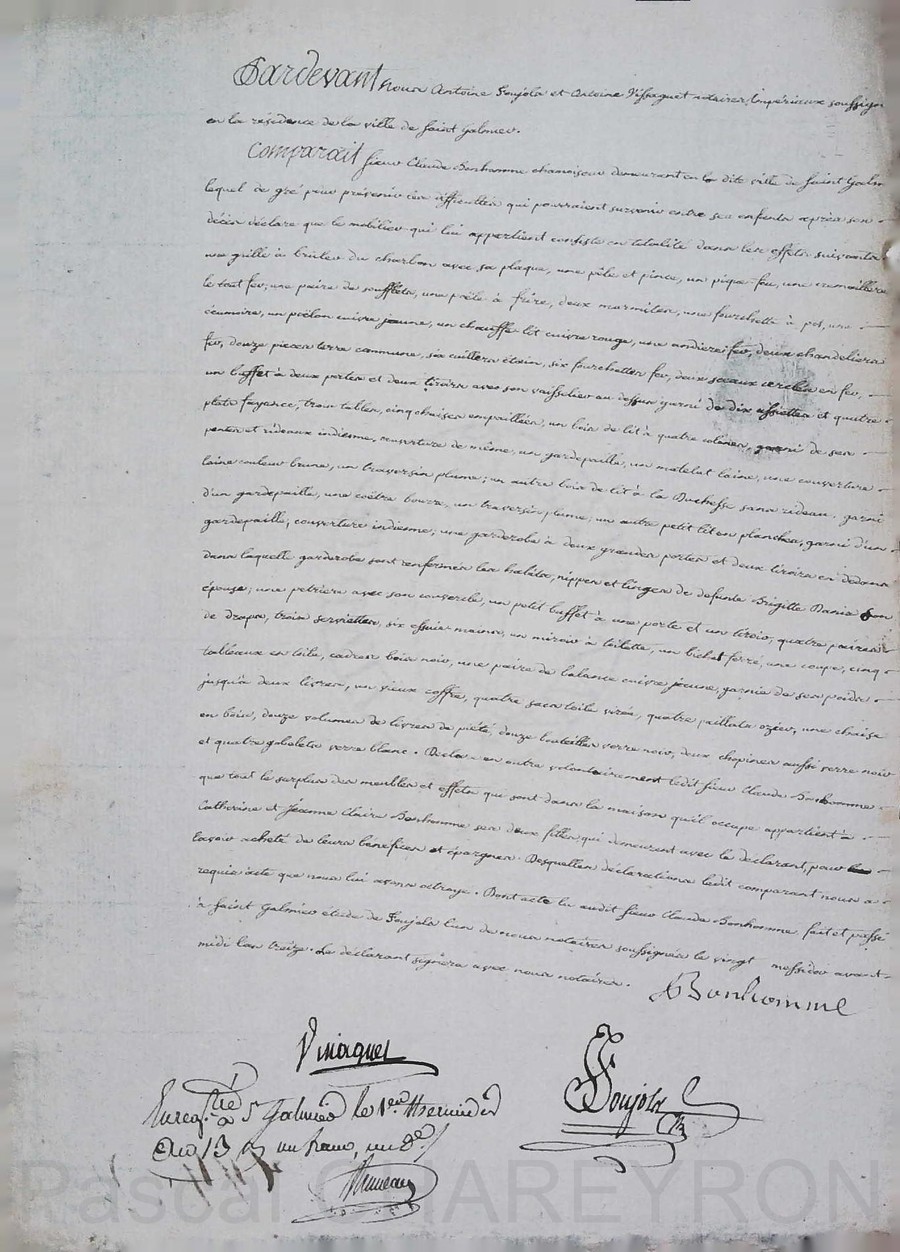 Pardevant nous Antoine Soujola et Antoine Vissaguet notaires Impériaux soussignés
en la residence de la ville de Saint Galmier.
Comparait sieur Claude Bonhomme chamoiseur demeurant en la dite ville de Saint Galm
lequel de gré pour prévenir les difficultés qui pourraient survenir entre ses enfants après son
décès déclare que le mobilier qui lui appartient consiste en totalité dans les effets suivants
une grille à bruler du charbon avec sa plaque, une pêle et pince, un pique-feu, une cremaillere
le tout fer, une paire de soufflets, une poële à frire, deux marmites, une fourchette à pot, une
écumoire, un poëlon cuivre jaune, un chauffe lit cuivre rouge, une andiere fer, deux chandeliers
fer, douze pieces terre commune, six cuillers étain, six fourchettes fer, deux sceaux cerclés en fer,
un buffet à deux portes et deux tiroirs avec son vaisselier au dessus garni de dix assiettes et quatre
plats fayance, trois tables, cinq chaises empaillées, un bois de lit à quatre colones, garni de ses
pentes et rideaux indienne, couverture de même, un gardepaille, un matelat laine, une couverture
laine couleur brune, un traversin plume; un autre bois de lit à la Duchesse sans rideau, garni
d'un gardepaille, une coëtre bourre, un traversin plume, un autre petit lit en planches, garni d'un
gardepaille, couverture indienne, une garderobe à deux grandes portes et deux tiroirs en dedans
dans laquelle garderobe sont renfermés les habits, nippes et linges de defunte Brigitte Dania son
épouse, une petriere avec son couvercle, un petit buffet à une porte et un tiroir, quatre paires
de draps, trois serviettes, six essuie-mains, un miroir à toilette, un bichet ferré, une coupe, cinq
tableaux en toile, cadres bois noir, une paire de balance cuivre jaune, garnie de ses poids
jusqu'à deux livres, un vieux coffre, quatre sacs toile, quatre paillats ozier, une chaise
en bois, douze volumes de livres de piété, douze bouteilles verre noir, deux chopines aussi verre noir
et quatre gobelets verre blanc. Déclare en outre volontairement ledit sieur Claude Bonhomme
que tout le surplus des meubles et effets qui sont dans la maison qu'il occupe appartient à
Catherine et Jeanne Claire Bonhomme ses deux filles, qui demeurent avec le déclarant, pour
l'avoir acheté de leurs benefices et épargnes. Desquelles déclarations ledit comparant nous a
requis acte que nous lui avons octroyé. Dont acte lu audit sieur Claude Bonhomme, fait et passé
à Saint Galmier étude de Soujola l'un de nous notaires soussignés le vingt messidor avant
midi l'an treize. Le déclarant signera avec nous notaires.
Bonhomme
Vissaguet
Soujola
Enreg.tré à St Galmier le 1er thermidor
An 13 un franc, un de
Pascal CHAREYRON